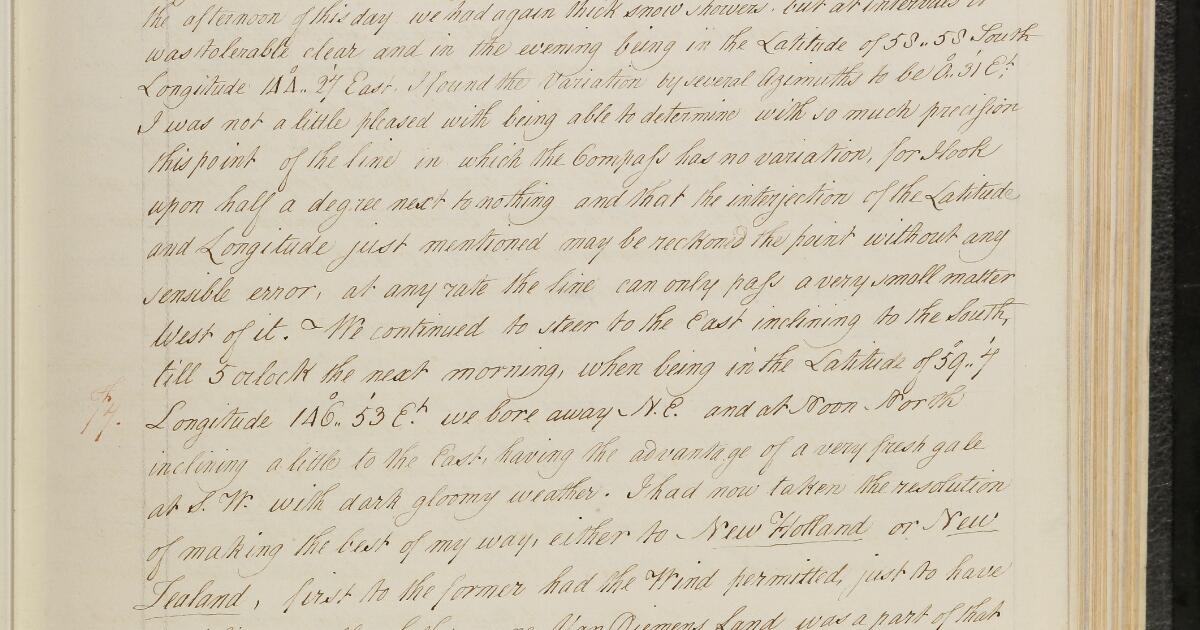 the afternoon of this day we had again thick snow showers, but at intervals it
was tolerable clear and in the evening being in the Latitude of 58°.. 58 South
Longitude 144°.. 27' East. I found the Variation by several Azimuths to be 0°.. 31' Et.
I was not a little pleased with being able to determine with so much precision
this point of the line in which the Compass has no variation, for I look
upon half a degree next to nothing and that the interjection of the Latitude
and Longitude just mentioned may be reckon'd the point without any
sensible error, at any rate the line can only pass a very small matter
West of it. ~ We continued to steer to the East inclining to the South,
till 5 oclock the next morning, when being in the Latitude of 59°.. 7'
Longitude 146°.. 53' Et. we bore away N.E. and at Noon North
inclining a little to the East, having the advantage of a very fresh gale
at S.W. with dark gloomy weather. I had now taken the resolution
of making the best of my way, either to New Holland or New
Zealand, first to the former had the Wind permitted, just to have
Van Diemens Land was a part of that